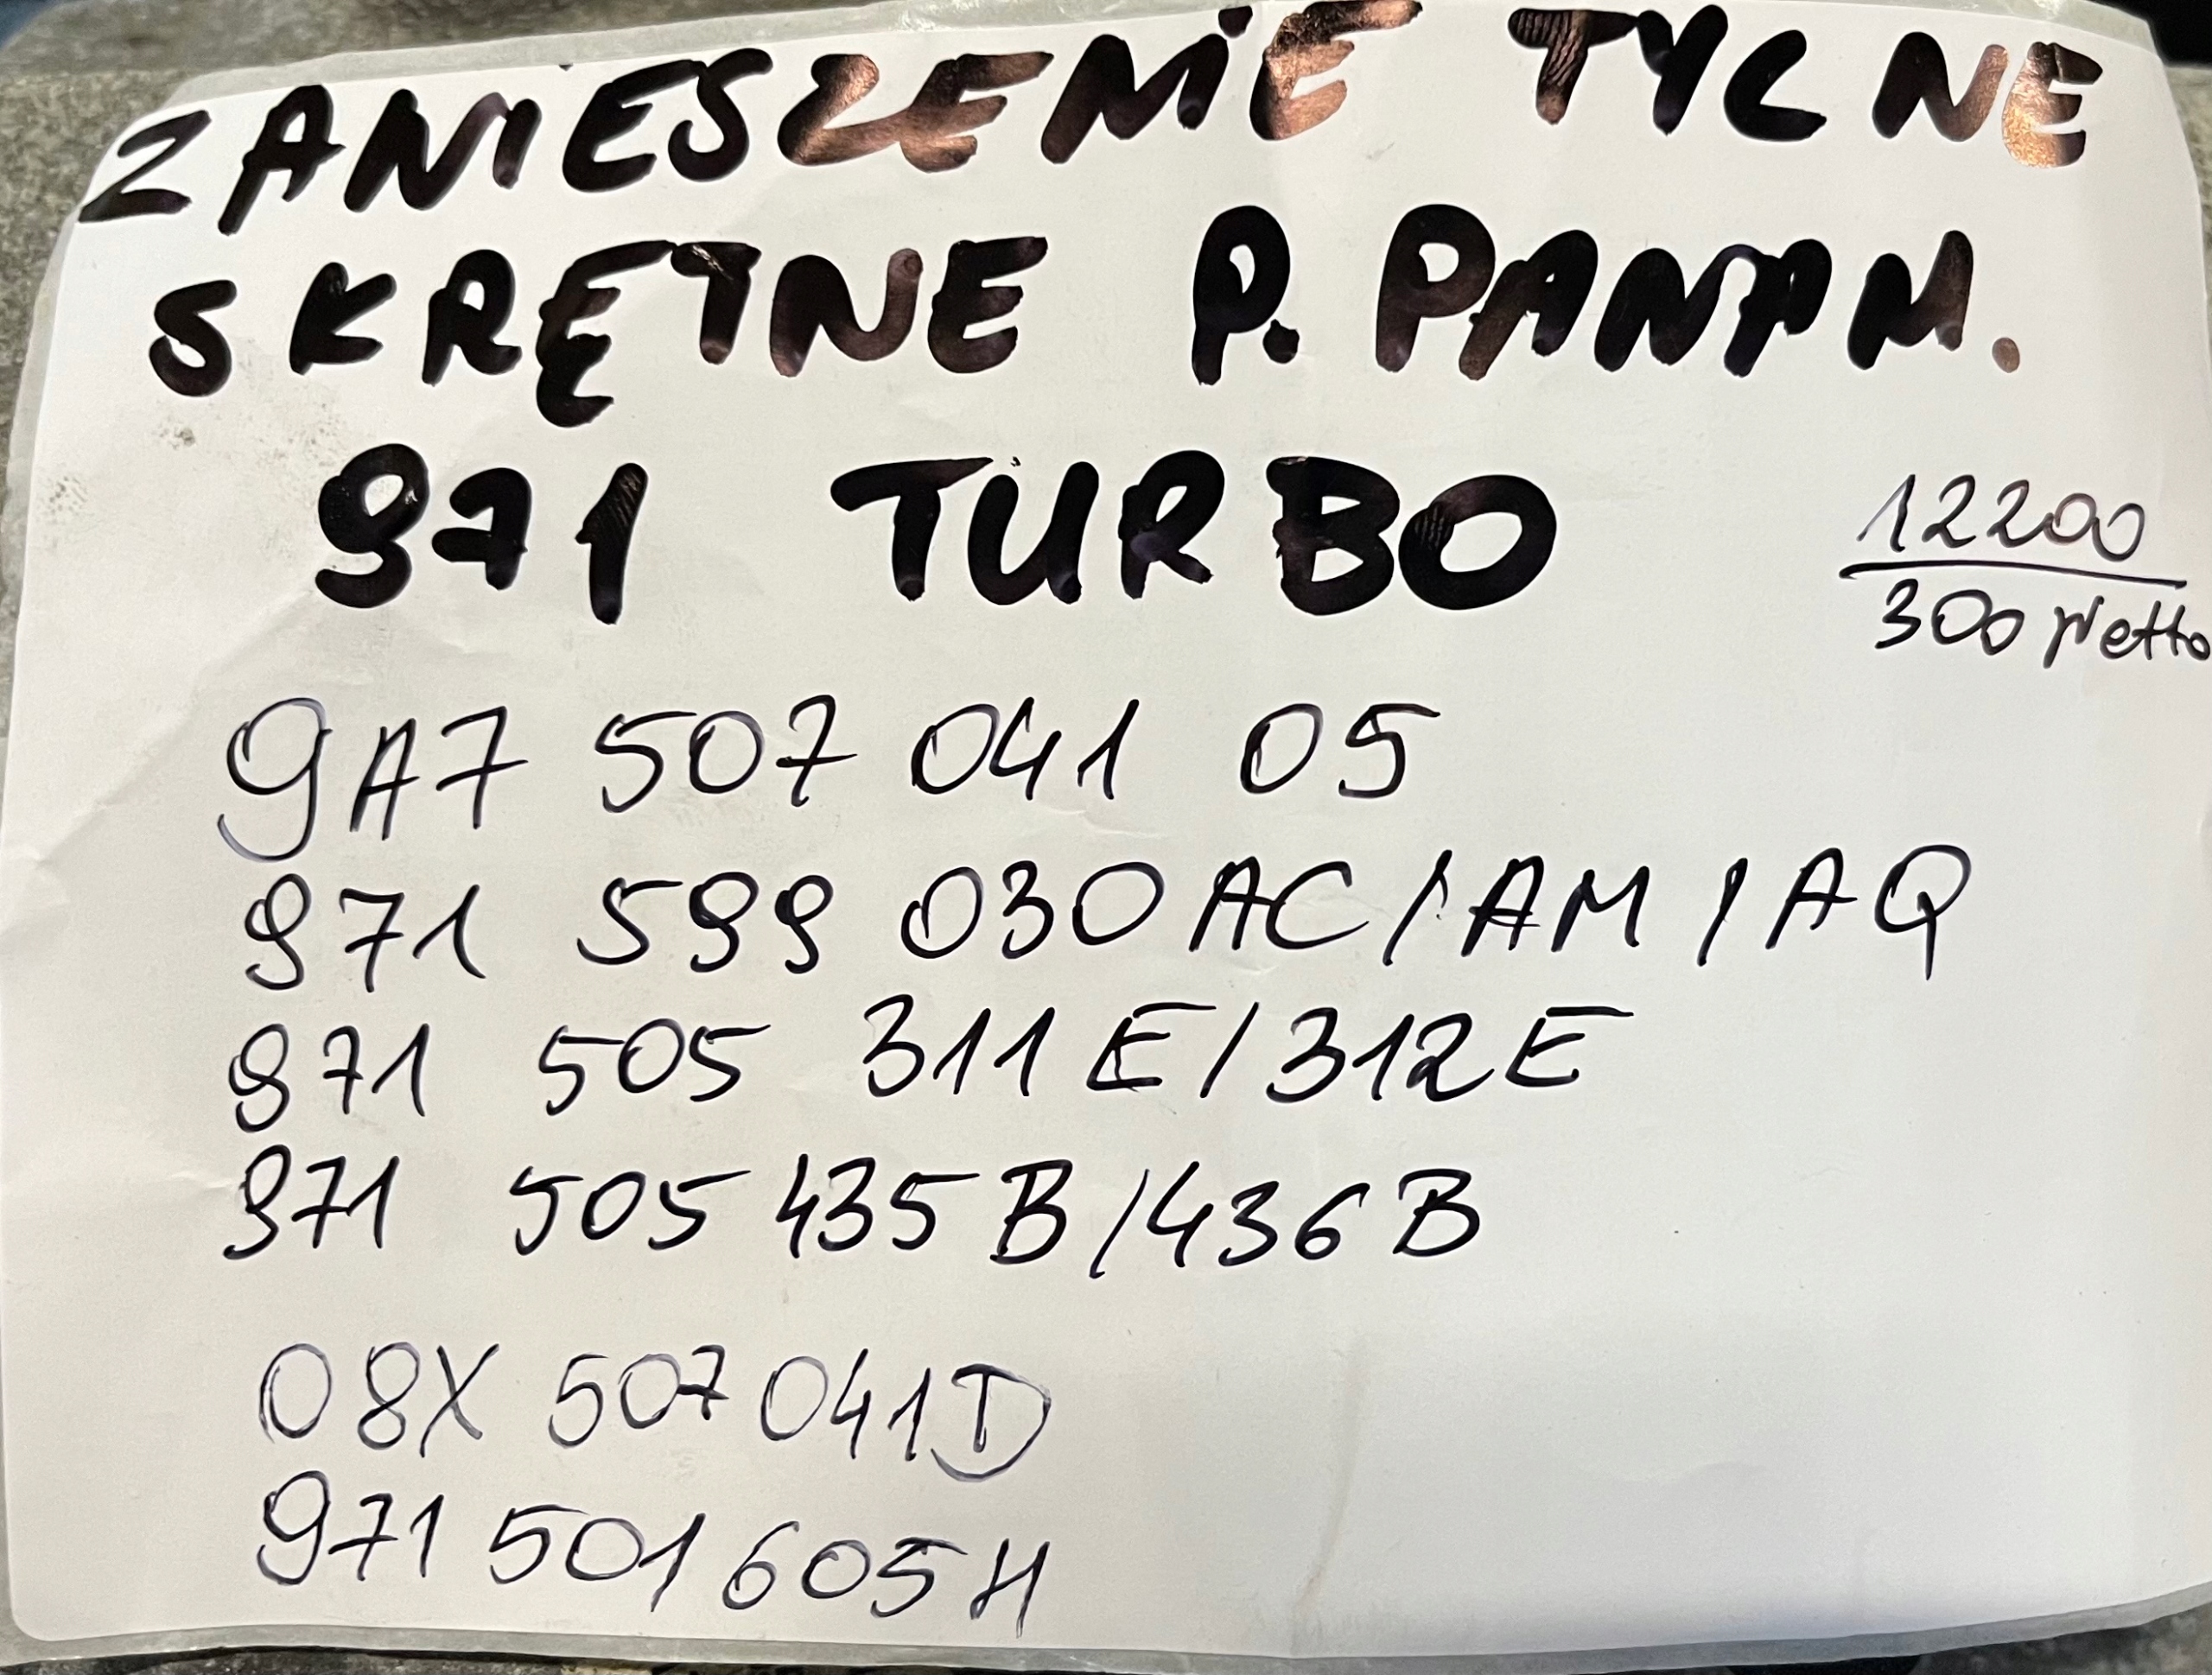 ZAWIESZENIE TYLNE
SKRĘTNE P. PANAM.
971 TURBO
12200
300 Netto
9A7 507 041 05
971 599 030 AC / AM / AQ
971 505 311 E / 312 E
971 505 435 B / 436 B
08X 507 041 D
971 501 605 H